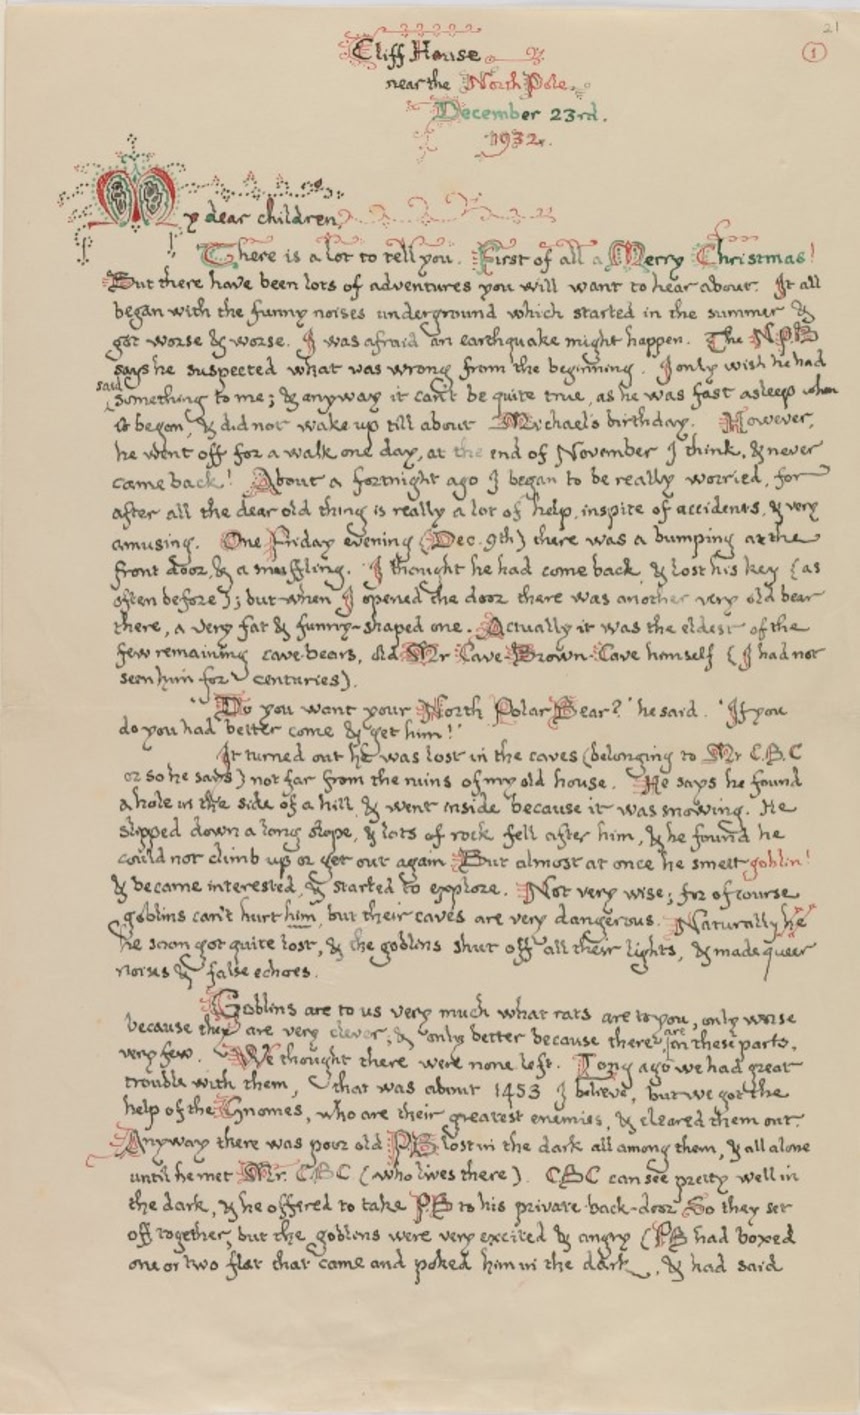 21
1
Cliff House
near the North Pole
December 23rd.
1932.
My dear children,
There is a lot to tell you. First of all a Merry Christmas!
But there have been lots of adventures you will want to hear about. It all
began with the funny noises underground which started in the summer &
got worse & worse. I was afraid an earthquake might happen. The N.P.B
says he suspected what was wrong from the beginning. I only wish he had
said
something to me; & anyway it can't be quite true, as he was fast asleep when
it began, & did not wake up till about Michael's birthday. However,
he went off for a walk one day, at the end of November I think, & never
came back! About a fortnight ago I began to be really worried, for
after all the dear old thing is really a lot of help, inspite of accidents, & very
amusing. One Friday evening (Dec. 9th) there was a bumping at the
front door, & a snuffling. I thought he had come back, & lost his key (as
often before); but when I opened the door there was another very old bear
there, a very fat & funny-shaped one. Actually it was the eldest of the
few remaining cave-bears, old Mr Cave Brown Cave himself (I had not
seen him for centuries).
"Do you want your North Polar Bear?" he said. "If you
do you had better come & get him!"
It turned out he was lost in the caves (belonging to Mr C.B.C
or so he says) not far from the ruins of my old house. He says he found
a hole in the side of a hill & went inside because it was snowing. He
slipped down a long slope, & lots of rock fell after him, & he found he
could not climb up or get out again But almost at once he smelt goblin!
& became interested, & started to explore. Not very wise; for of course
goblins can't hurt him, but their caves are very dangerous. Naturally he
he soon got quite lost, & the goblins shut off all their lights, & made queer
noises & false echoes.
Goblins are to us very much what rats are to you, only worse
because they are very clever; & only better because there are in these parts,
very few. We thought there were none left. Long ago we had great
trouble with them, that was about 1453 I believe, but we got the
help of the Gnomes, who are their greatest enemies, & cleared them out.
Anyway there was poor old PB lost in the dark all among them, & all alone
until he met Mr. CBC (who lives there). CBC can see pretty well in
the dark, & he offered to take PB to his private back-door So they set
off together, but the goblins were very excited & angry (PB had boxed
one or two flat that came and poked him in the dark, & had said